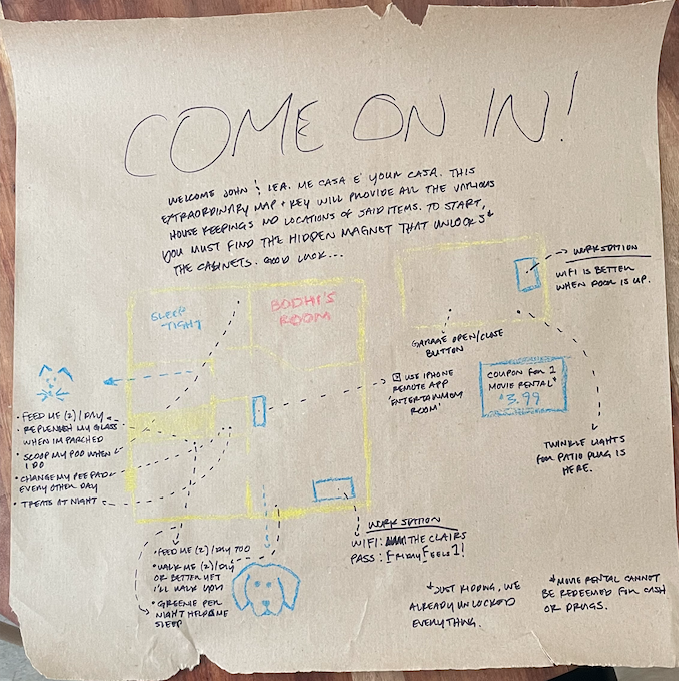 COME ON IN!
WELCOME JOHN & LEA. ME CASA E' YOUR CASA. THIS
EXTRAORDINARY MAP + KEY WILL PROVIDE ALL THE VARIOUS
HOUSE KEEPINGS AND LOCATIONS OF SAID ITEMS. TO START,
YOU MUST FIND THE HIDDEN MAGNET THAT UNLOCKS*
THE CABINETS. GOOD LUCK...
SLEEP
TIGHT
BODHI'S
ROOM
WORKSTATION
WIFI IS BETTER
WHEN DOOR IS UP.
GARAGE OPEN/CLOSE
BUTTON
USE IPHONE
REMOTE APP
'ENTERTAINMENT
ROOM'
COUPON FOR 1
MOVIE RENTAL*
$3.99
TWINKLE LIGHTS
FOR PATIO PLUG IS
HERE.
• FEED ME (2)/DAY
• REPLENISH MY GLASS
WHEN IM PARCHED
• SCOOP MY POO WHEN
I DO
• CHANGE MY PEE PAD
EVERY OTHER DAY
• TREATS AT NIGHT
WORKSTATION
WIFI: THE CLAIRS
PASS: FRIDAY FEELS 1!
• FEED ME (2)/DAY TOO
• WALK ME (2)/DAY
OR BETTER YET
I'LL WALK YOU!
• GREENIE PER
NIGHT HELP ME
SLEEP
*JUST KIDDING, WE
ALREADY UNLOCKED
EVERYTHING.
*MOVIE RENTAL CANNOT
BE REDEEMED FOR CASH
OR DRUGS.